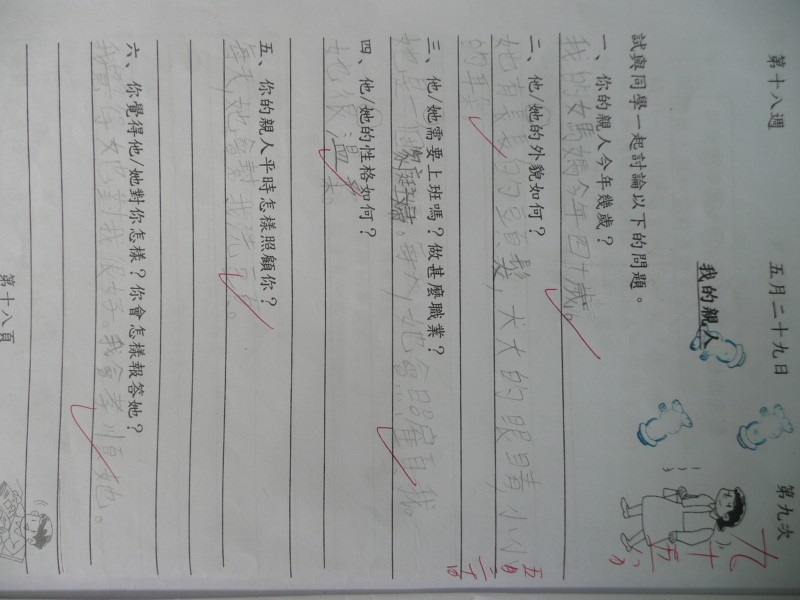 第十八週 五月二十九日 第九次
九十五分
我的親人
試與同學一起討論以下的問題。
一、你的親人今年幾歲？
我的媽媽今年四十歲。
二、他/她的外貌如何？
她有長長的頭髮，大大的眼睛，小小
的耳朵
三、他/她需要上班嗎？做甚麼職業？
她是一個家庭主婦。每天她會照顧我。
四、他/她的性格如何？
她很溫柔。
五、你的親人平時怎樣照顧你？
每天她會幫我洗
六、你覺得他/她對你怎樣？你會怎樣報答她？
我覺得她對我很好。我會孝順她。
第十八頁